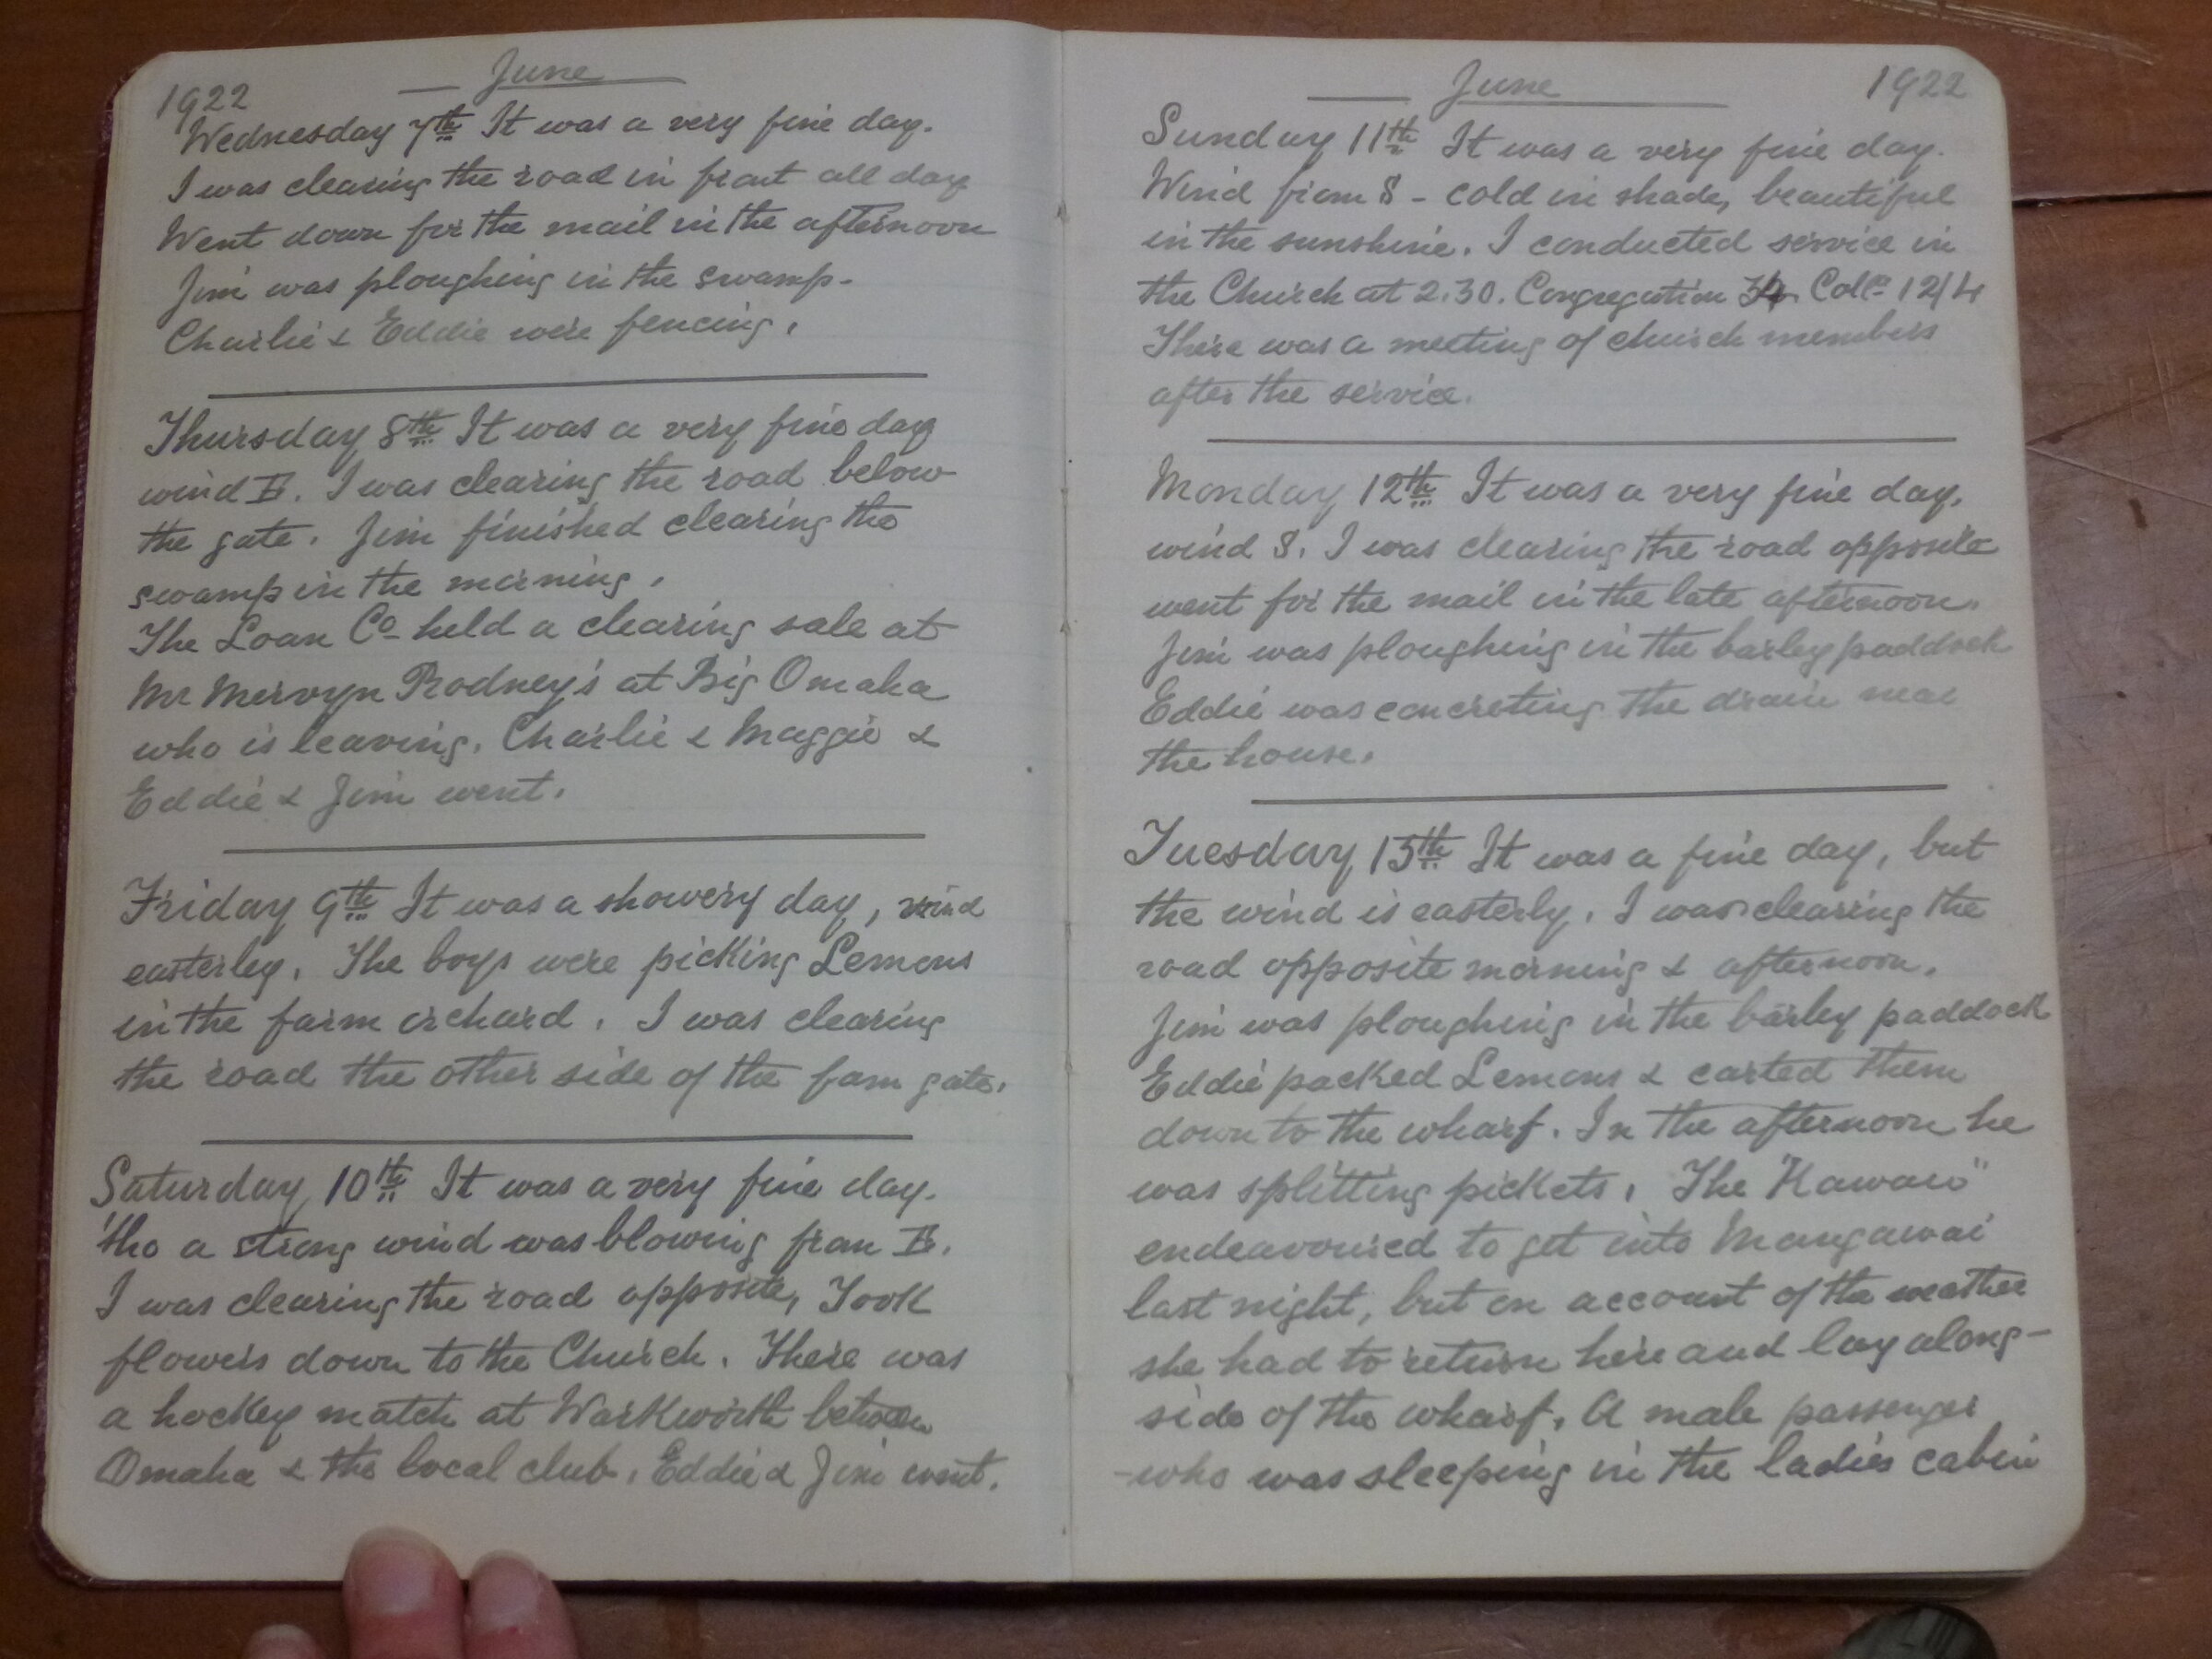 1922 June
Wednesday 7th It was a very fine day.
I was clearing the road in front all day
Went down for the mail in the afternoon
Jim was ploughing in the swamp.
Charlie & Eddie were fencing.
Thursday 8th It was a very fine day
wind E. I was clearing the road below
the gate. Jim finished clearing the
swamp in the morning.
The Loan Co held a clearing sale at
Mr Mervyn Rodney's at Big Omaha
who is leaving. Charlie & Maggie &
Eddie & Jim went.
Friday 9th It was a showery day, wind
easterley. The boys were picking Lemons
in the farm orchard. I was clearing
the road the other side of the farm gate.
Saturday 10th It was a very fine day.
'tho a strong wind was blowing from E.
I was clearing the road opposite, Took
flowers down to the Church. There was
a hockey match at Warkworth between
Omaha & the local club. Eddie & Jim went.
June 1922
Sunday 11th It was a very fine day.
Wind from S - cold in shade, beautiful
in the sunshine. I conducted service in
the Church at 2.30. Congregation Coll- 12/4
There was a meeting of church members
after the service.
Monday 12th It was a very fine day,
wind S. I was clearing the road opposite
went for the mail in the late afternoon.
Jim was ploughing in the barley paddock
Eddie was concreting the drain near
the house.
Tuesday 13th It was a fine day, but
the wind is easterly. I was clearing the
road opposite morning & afternoon.
Jim was ploughing in the barley paddock
Eddie packed Lemons & carted them
down to the wharf. In the afternoon he
was splitting pickets. The "Kawau"
endeavoured to get into Mangawai
last night, but on account of the weather
she had to return here and lay along-
side of the wharf. A male passenger
-who was sleeping in the ladies cabin